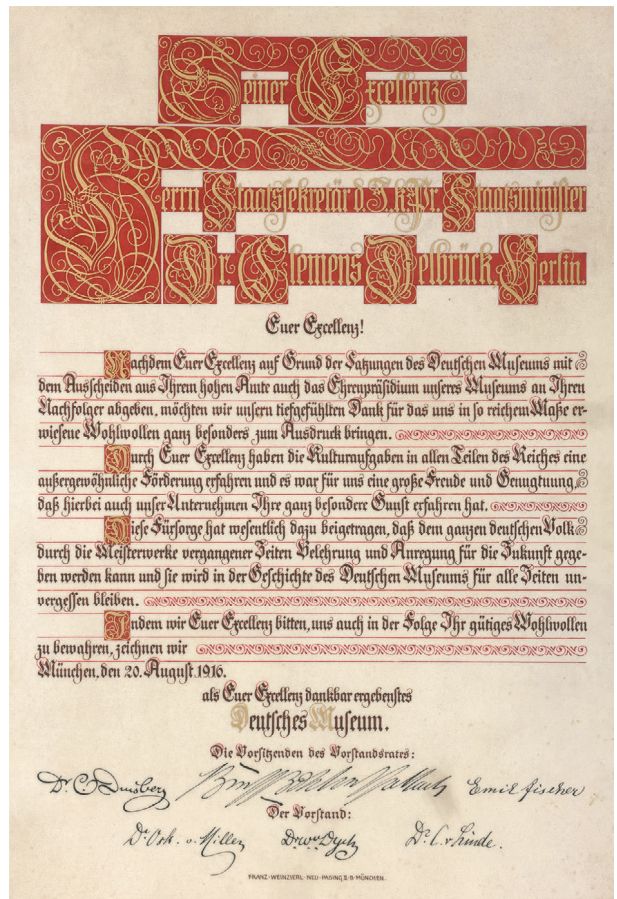 Seiner Excellenz
Herrn Staatssekretär d. I. k. Pr. Staatsminister
Dr. Clemens Delbrück, Berlin.
Euer Excellenz!
Nachdem Euer Excellenz auf Grund der Satzungen des Deutschen Museums mit
dem Ausscheiden aus Ihren hohen Amte auch das Ehrenpräsidium unseres Museums an Ihren
Nachfolger abgeben, möchten wir unsern tiefgefühlten Dank für das uns in so reichem Maße er-
wiesene Wohlwollen ganz besonders zum Ausdruck bringen.
Durch Euer Excellenz haben die Kulturaufgaben in allen Teilen des Reiches eine
außergewöhnliche Förderung erfahren und es war für uns eine große Freude und Genugtuung,
daß hierbei auch unser Unternehmen Ihre ganz besondere Gunst erfahren hat.
Diese Fürsorge hat wesentlich dazu beigetragen, daß dem ganzen deutschen Volk
durch die Meisterwerke vergangener Zeiten Belehrung und Anregung für die Zukunft gege-
ben werden kann und sie wird in der Geschichte des Deutschen Museums für alle Zeiten un-
vergessen bleiben.
Indem wir Euer Excellenz bitten, uns auch in der Folge Ihr gütiges Wohlwollen
zu bewahren, zeichnen wir
München, den 20. August 1916.
als Euer Excellenz dankbar ergebenstes
Deutsches Museum.
Die Vorsitzenden des Vorstandsrates:
Dr. C. Duisberg Emil Fischer
Der Vorstand:
Dr. Osk. v. Miller Dr. W. v. Dyck Dr. C. v. Linde.
FRANZ·WEINZIERL·NEU-PASING II·B·MÜNCHEN.